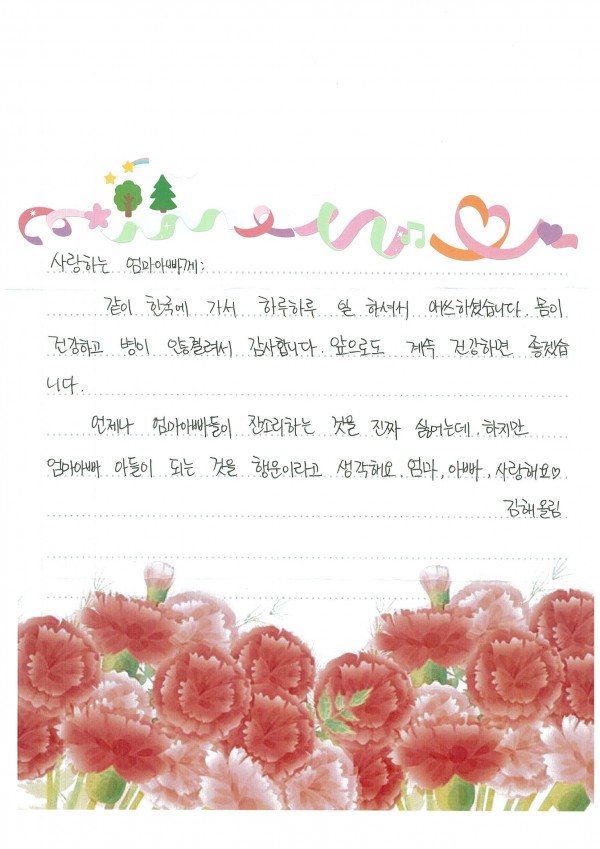 사랑하는 엄마아빠께:
같이 한국에 가서 하루하루 일 하셔서 애쓰하셨습니다. 몸이
건강하고 병이 안통결려서 감사합니다. 앞으로도 계속 건강하면 좋겠습
니다.
언제나 엄마아빠들이 잔소리하는 것을 진짜 싫어는데, 하지만
엄마아빠 아들이 되는 것을 행운이라고 생각해요. 엄마, 아빠, 사랑해요♡
김해 올림